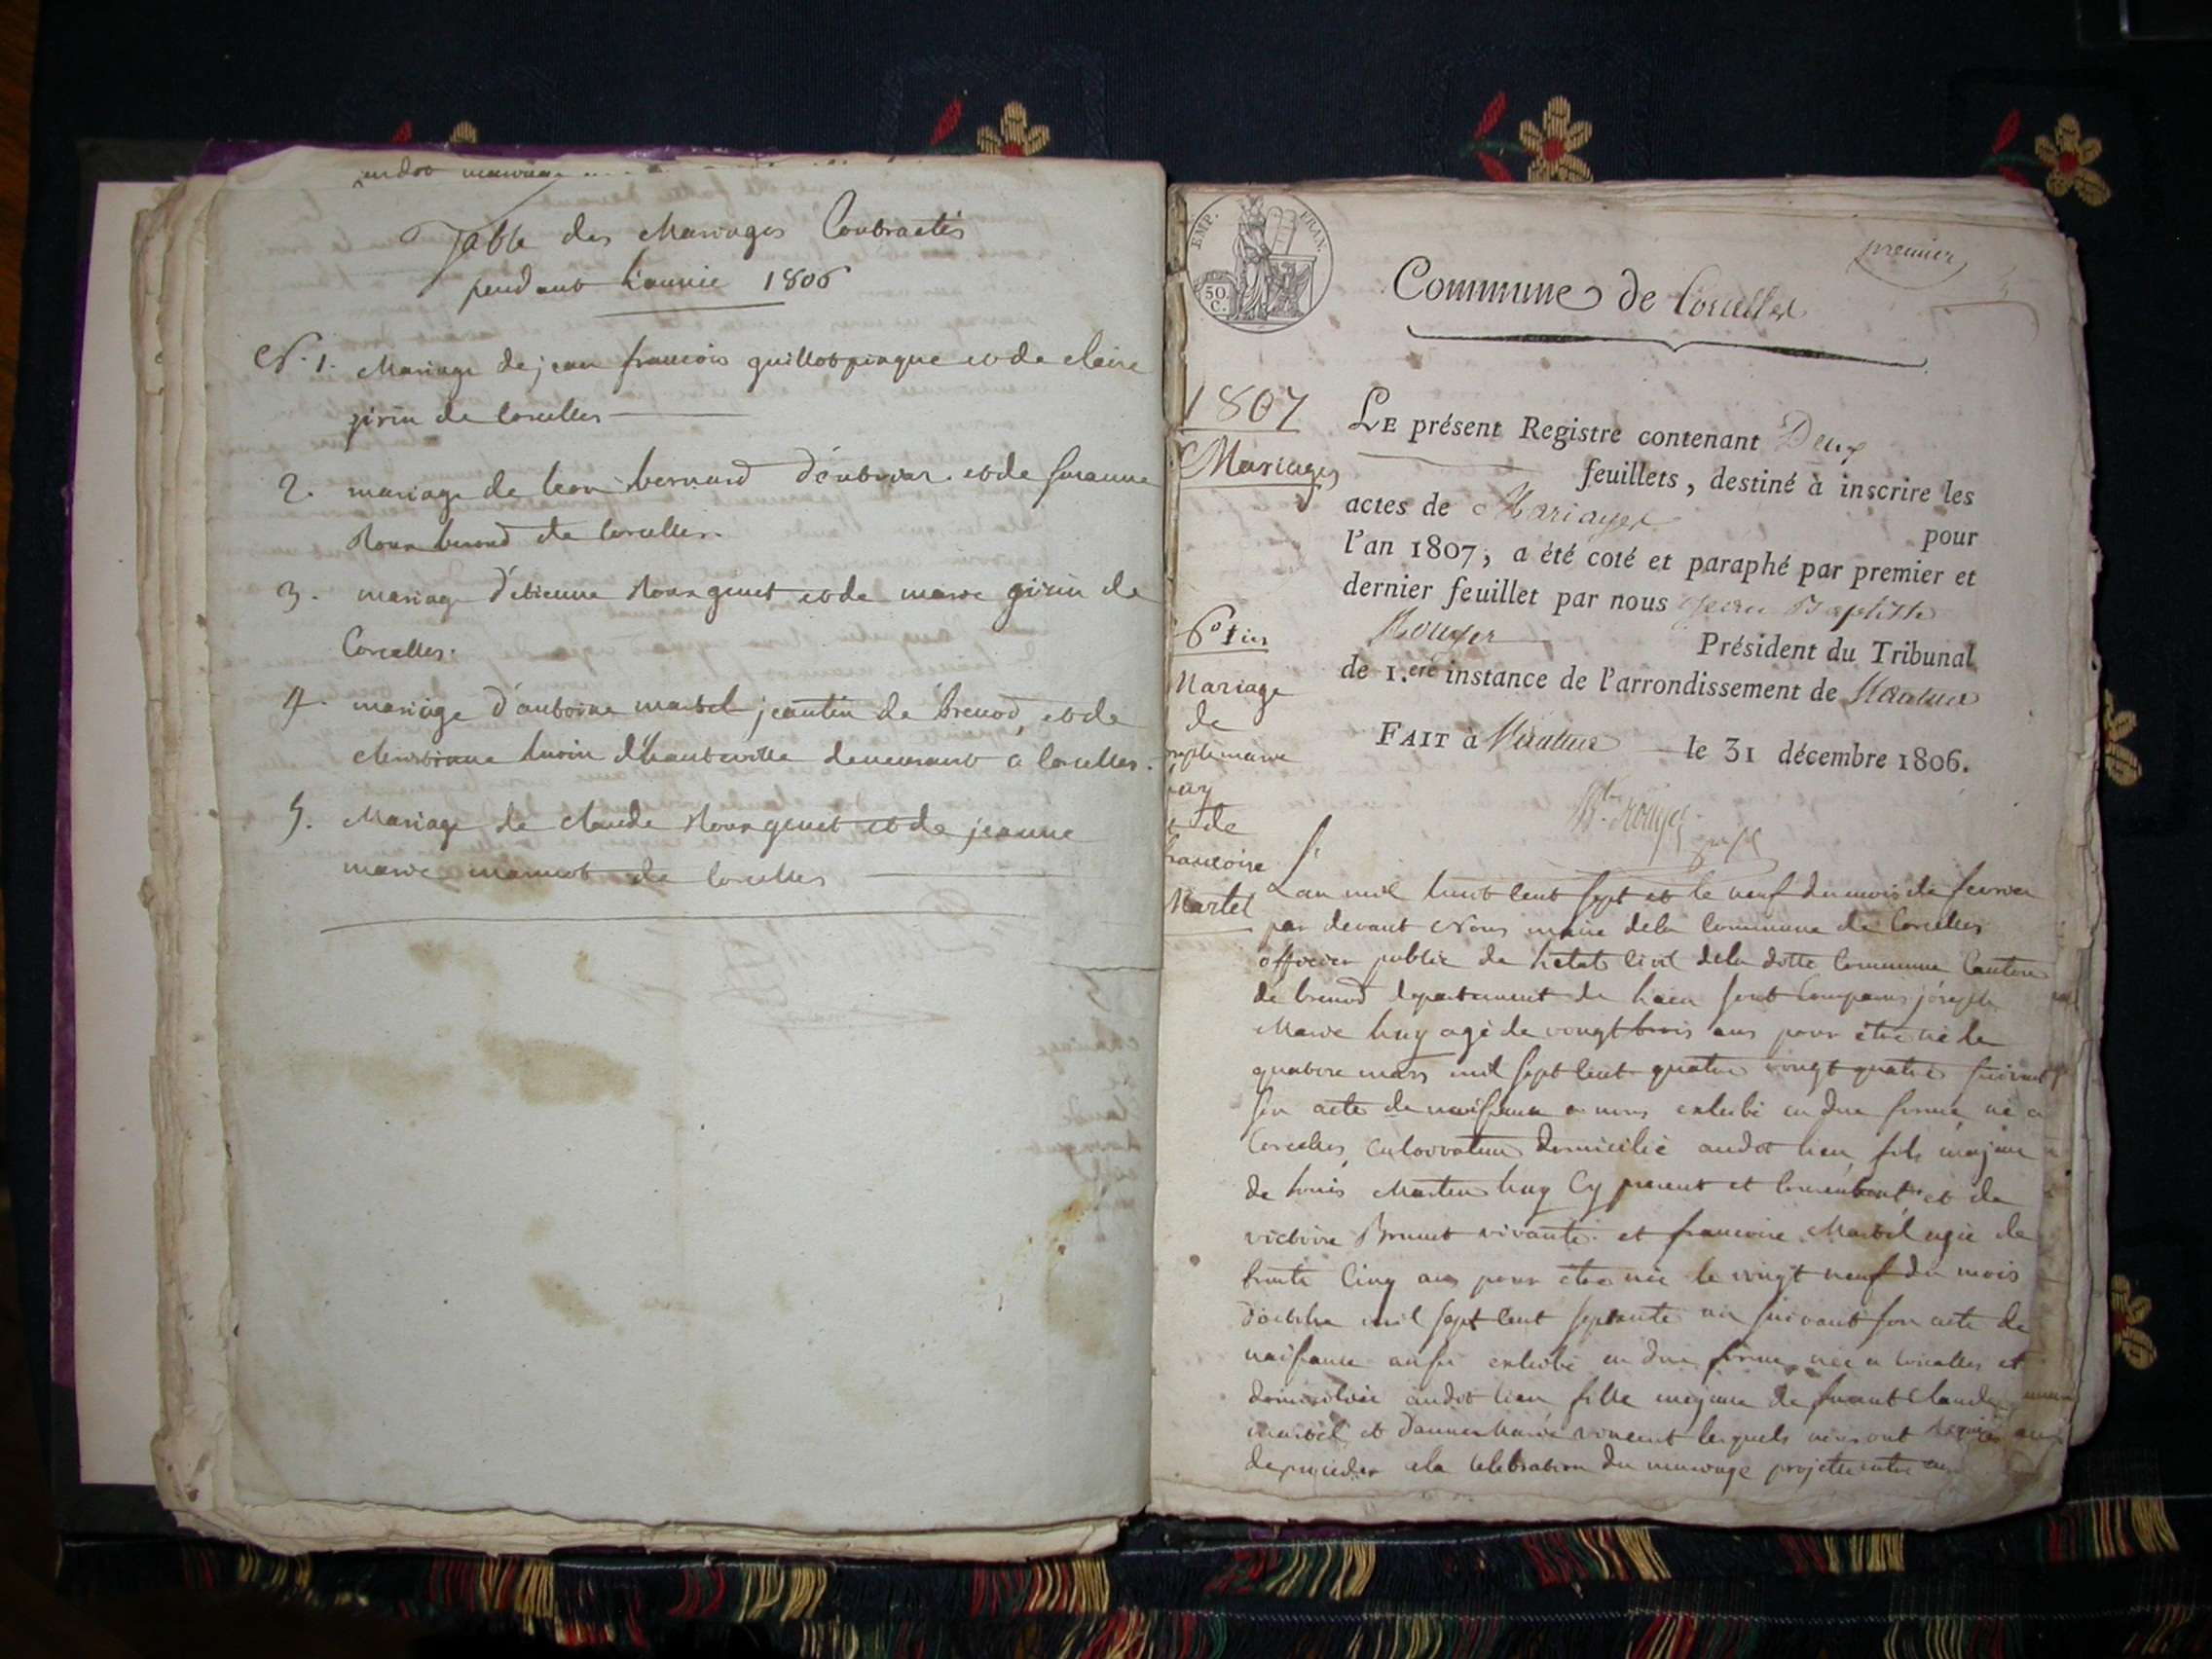 Table des Mariages Contractés
pendant l'année 1806
N. 1. Mariage de jean francois guillot et de claire
girin de Corcelles
2. mariage de bernard et de suzanne
de Corcelles.
3. mariage d'etienne et de marie girin de
Corcelles.
4. mariage d'antoine martel jeantin de brenod, et de
d'hauteville demeurant a Corcelles.
5. Mariage de claude et de jeanne
marie de Corcelles
premier
EMP. FRAN.
50. C.
Commune de Corcelles
1807
Mariages
LE présent Registre contenant Deux
feuillets, destiné à inscrire les
actes de Mariages pour
l'an 1807, a été coté et paraphé par premier et
dernier feuillet par nous jean Baptiste
Rouyer Président du Tribunal
de 1.ere instance de l'arrondissement de Nantua
FAIT à Nantua le 31 décembre 1806.
Mariage
de
et de
francoise
Martel
L'an mil huit cent sept et le neuf du mois de fevrier
par devant Nous maire de la Commune de Corcelles
officier public de l'etat Civil de la ditte Commune Canton
de brenod departement de l'ain sont Comparus joseph
Marie huy agé de vingt trois ans pour être né le
quatre mars mil sept cent quatre vingt quatre suivant
son acte de naissance a nous exhibé en due forme, né a
Corcelles, cultivateur domicilié audit lieu, fils majeur
de Louis Martin huy Cy present et Consentant et de
victoire Brunet vivante. et francoise Martel agée de
trente Cinq ans pour être née le vingt neuf du mois
d'octobre mil sept cent septante un suivant son acte de
naissance aussi exhibé en due forme, née a Corcelles et
domiciliée audit lieu fille majeure de Claude
martel et d'anne Marie vincent lesquels nous ont requis
de proceder a la Celebration du mariage projetté entre eux